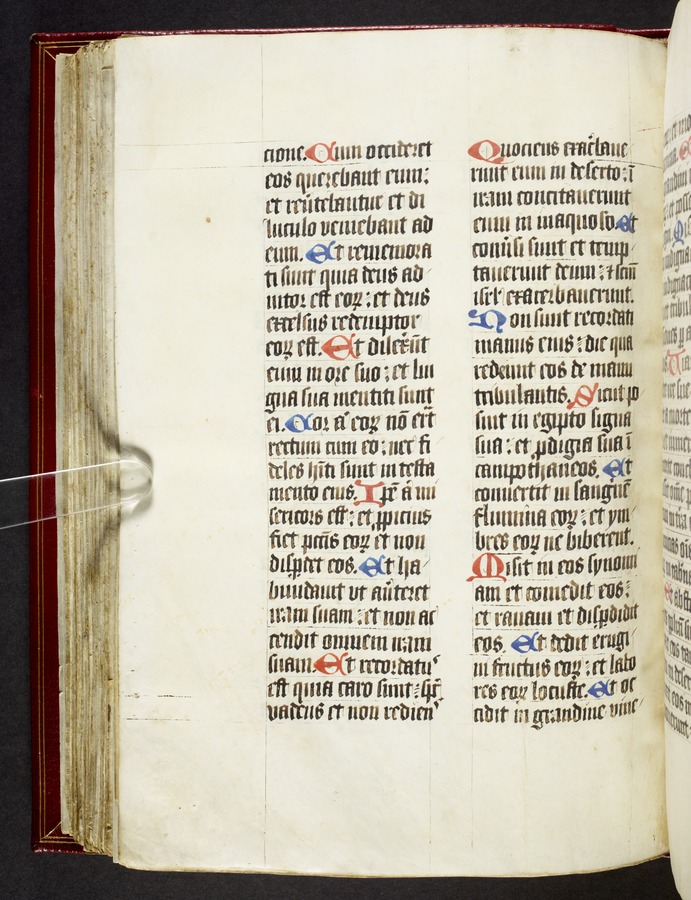 cione. Cum occideret
eos querebant eum:
et reũtebantur et di
luculo veniebant ad
eum. Et rememora
ti sunt quia deus ad
iutor est eoꝝ: et deus
excelsus redemptor
eoꝝ est. Et dilexũt
eum in ore suo: et lin
gua sua mentiti sunt
ei. Cor aũ eoꝝ nõ erat
rectum cum eo: nec fi
deles hñti sunt in testa
mento eius. Ipẽ aũ mi
sericors est: et ꝓpicius
fiet pctĩs eoꝝ et non
disꝑdet eos. Et ha
bundauit vt auteret
iram suam: et non ac
cendit omnem iram
suam. Et recordatuꝰ
est quia caro sunt: spc
vadens et non redienꝰ
Quociens exacbaue
runt eum in deserto: ĩ
iram concitauerunt
eum in inaquoso. Et
conũsi sunt et temp
tauerunt deum: ⁊ scm
isrl' exacerbauerunt.
Non sunt recordati
manus eius: die qua
redemit eos de manu
tribulantis. Sicut po
suit in egipto signa
sua: et ꝓdigia sua ĩ
campo thaneos. Et
conuertit in sanguiẽ
flumina eoꝝ: et ym
bres eoꝝ ne biberent.
Misit in eos synomi
am et comedit eos:
et ranam et disꝑdidit
eos. Et dedit erugi
ni fructus eoꝝ: et labo
res eoꝝ locuste. Et oc
cidit in grandine vine